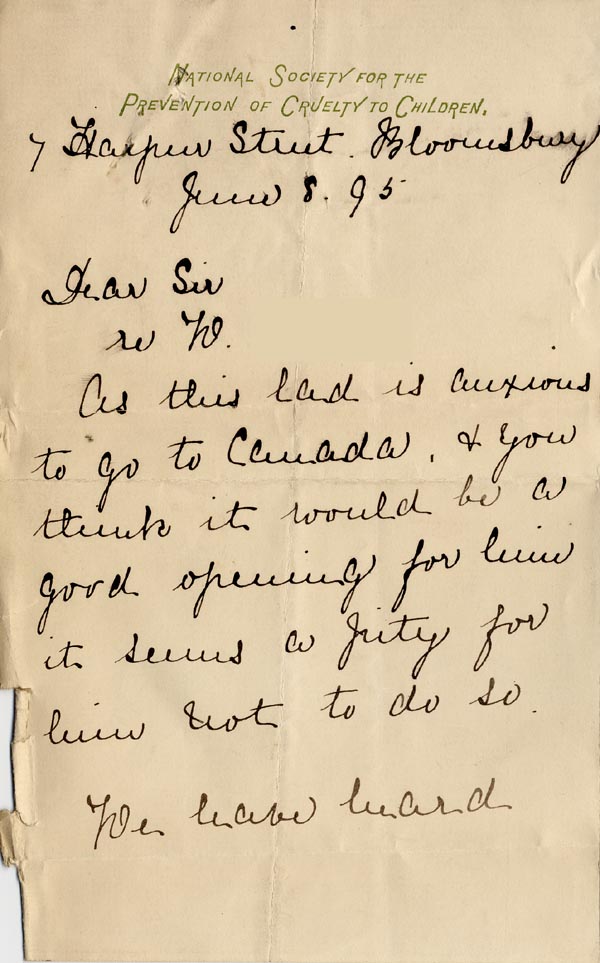 NATIONAL SOCIETY FOR THE
PREVENTION OF CRUELTY TO CHILDREN.
7 Harpur Street. Bloomsbury
June 8. 95
Dear Sir
re W.
As this lad is anxious
to go to Canada, & you
think it would be a
good opening for him
it seems a pity for
him not to do so.
We have heard